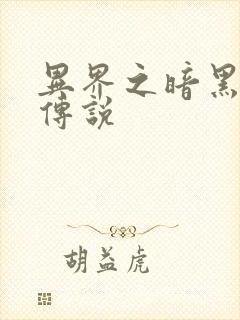 異界之暗黑
傳說
胡益虎